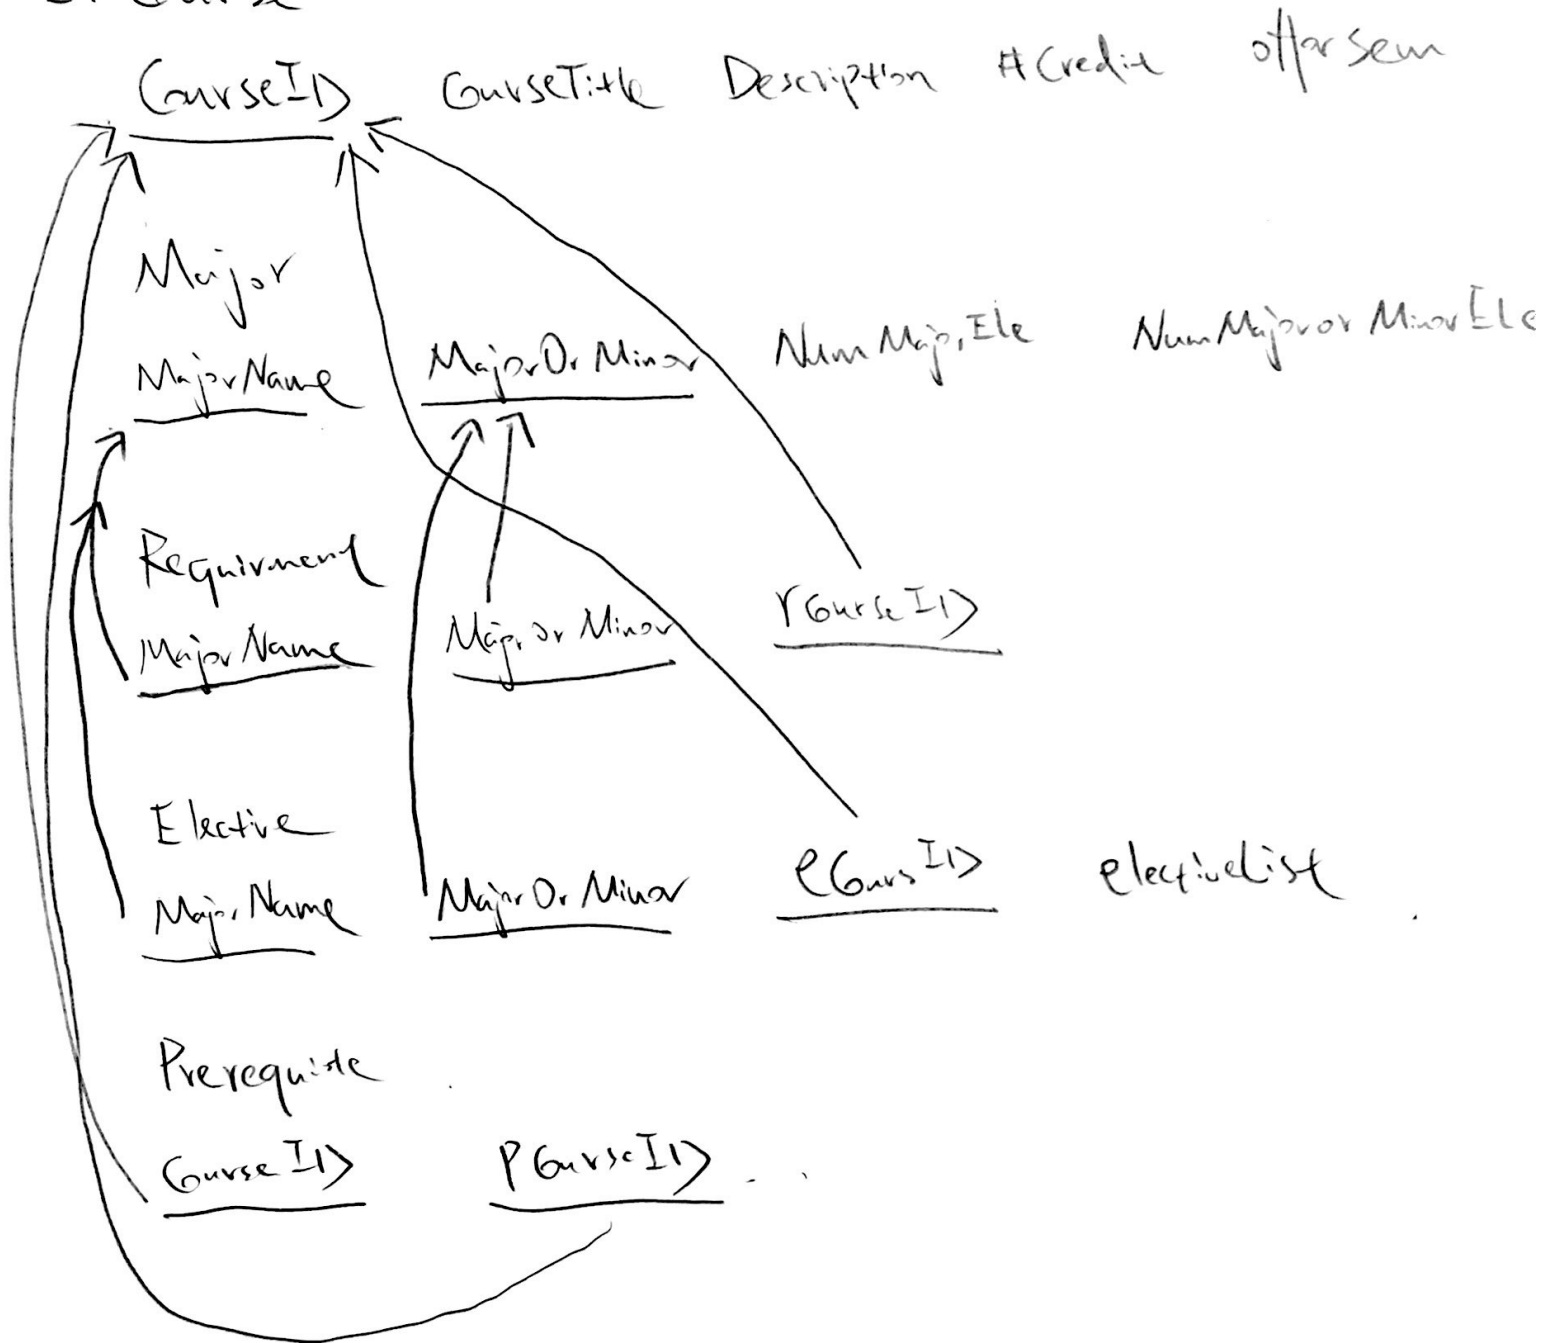 Course
CourseID CourseTitle Description #Credit offersem
Major
MajorName MajorOrMinor NumMajorEle NumMajororMinorEle
Requirment
MajorName MajorOrMinor rCourseID
Elective
MajorName MajorOrMinor eCoursID electiveList
Prerequiste
CourseID PCourseID